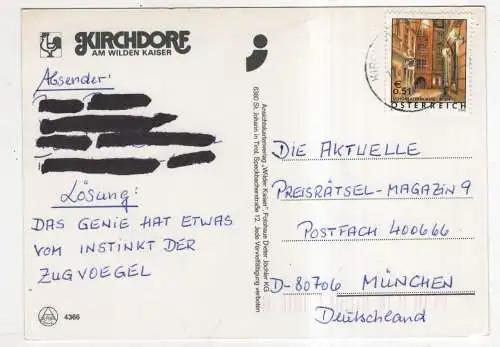 KIRCHDORF
AM WILDEN KAISER
Absender:
Lösung:
DAS GENIE HAT ETWAS
VOM INSTINKT DER
ZUGVOEGEL
4366
Ansichtskartenverlag „Wilder Kaiser", Fotohaus Dieter Jöckler KG
6380 St. Johann in Tirol, Speckbacherstraße 12, Jede Vervielfältigung verboten
€ 0.51
ÖSTERREICH
DIE AKTUELLE
PREISRÄTSEL-MAGAZIN 9
POSTFACH 400666
D-80706 MÜNCHEN
Deutschland